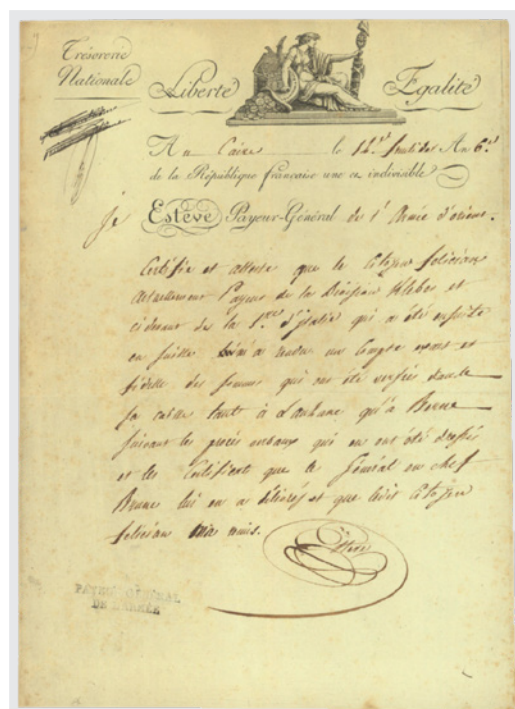 Trésorerie
Nationale
Liberté
Egalité
Au Caire le 12.er fructidor An 6.e
de la République française une et indivisible
Je
Estève Payeur-Général de l'Armée d'orient.
Certifie et atteste que le Citoyen felician
actuellement Payeur de la Division Kleber et
cidevant de la 1.ere d'italie qui a été ensuite
en suisse a rendu un Compte exact et
fidelle des sommes qui ont été versées dans
sa caisse tant à Lauzane qu'à Berne
suivant les procès verbaux qui en ont été dressés
et les Certificats que le Général en chef
Brune lui en a délivrés et que ledit Citoyen
felician m'a remis.
Esteve
PAYEUR GÉNÉRAL
DE L'ARMÉE